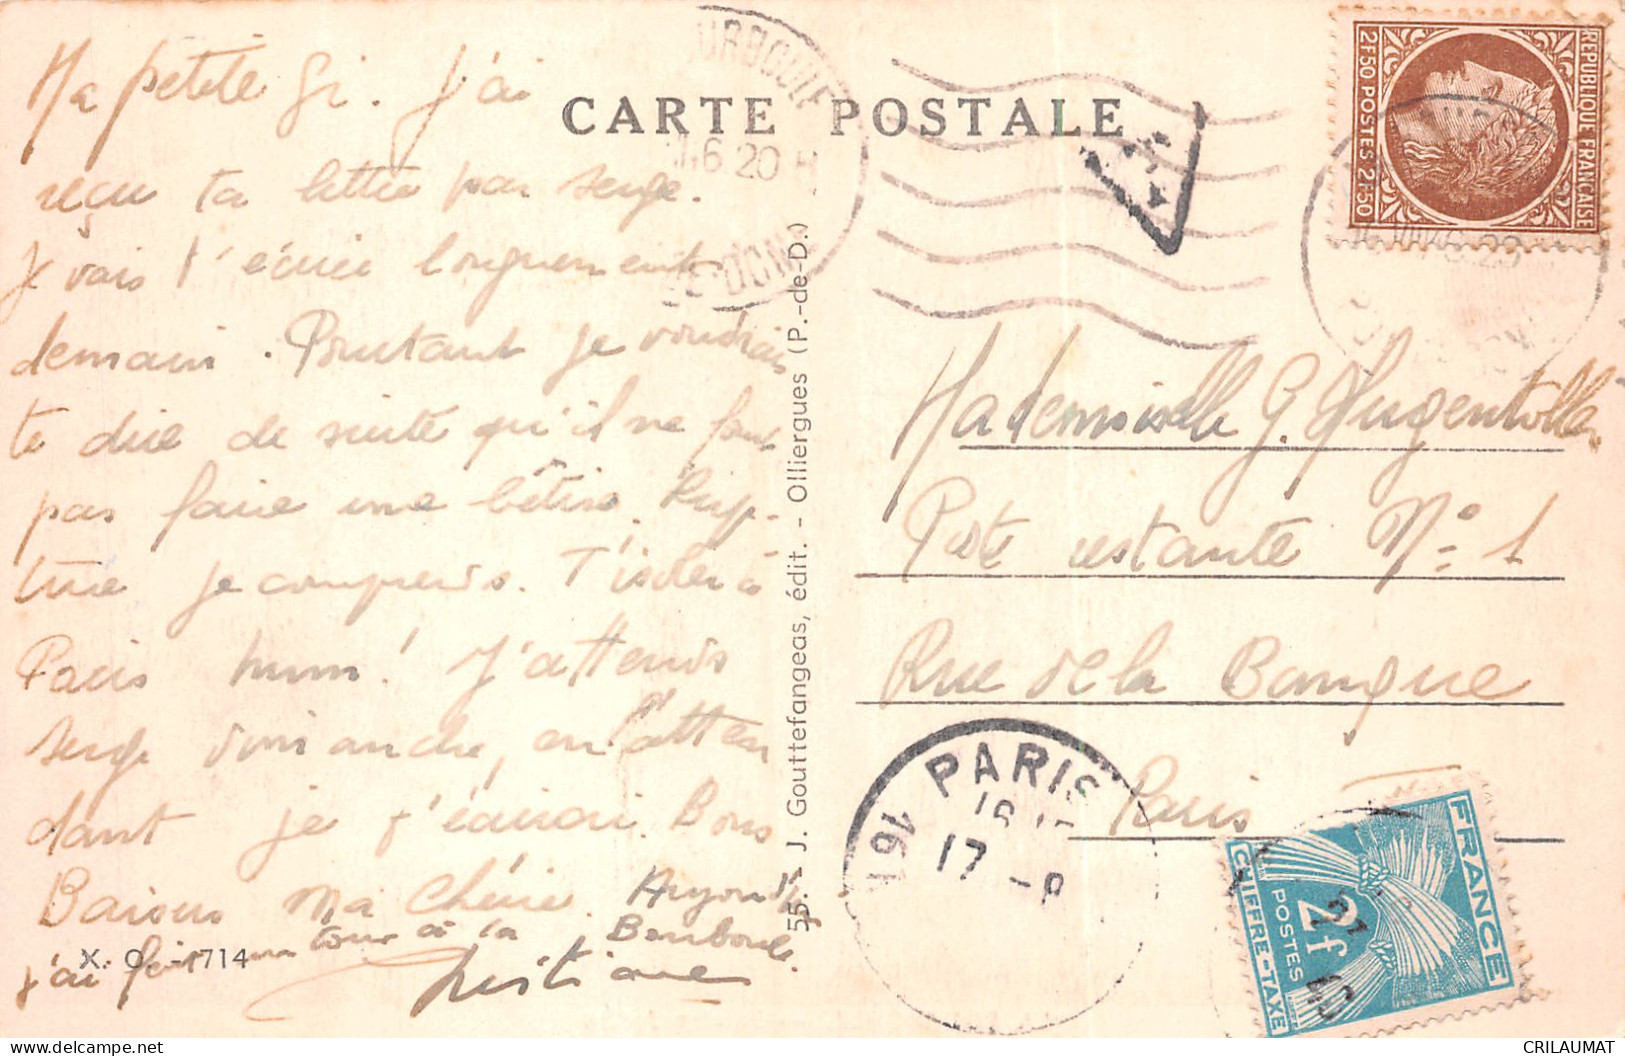 Ma petite Gi. J'ai
reçu ta lettre par Serge.
Je vais t'écrire longuement
demain. Pourtant je voudrais
te dire de suite qu'il ne faut
pas faire une bêtise. Rup-
ture je comprends. T'isoler à
Paris hum! J'attends
Serge dimanche, en atten
dant je t'écrirai. Bons
Baisers Ma Chérie. Aujourd'hui
j'ai fait un tour à la Bourboule.
Christiane
X. O. - 1714
CARTE POSTALE
6 20 H
55. - J. Gouttefangeas, édit. - Olliergues (P.-de-D.)
T
REPUBLIQUE FRANÇAISE
2F50 POSTES 2F50
Mademoiselle G. Hugentobler
Poste restante N° 1
Rue de la Banque
Paris
PARIS
17 -8
191
FRANCE
2f
POSTES
CHIFFRE-TAXE
CRILAUMAT